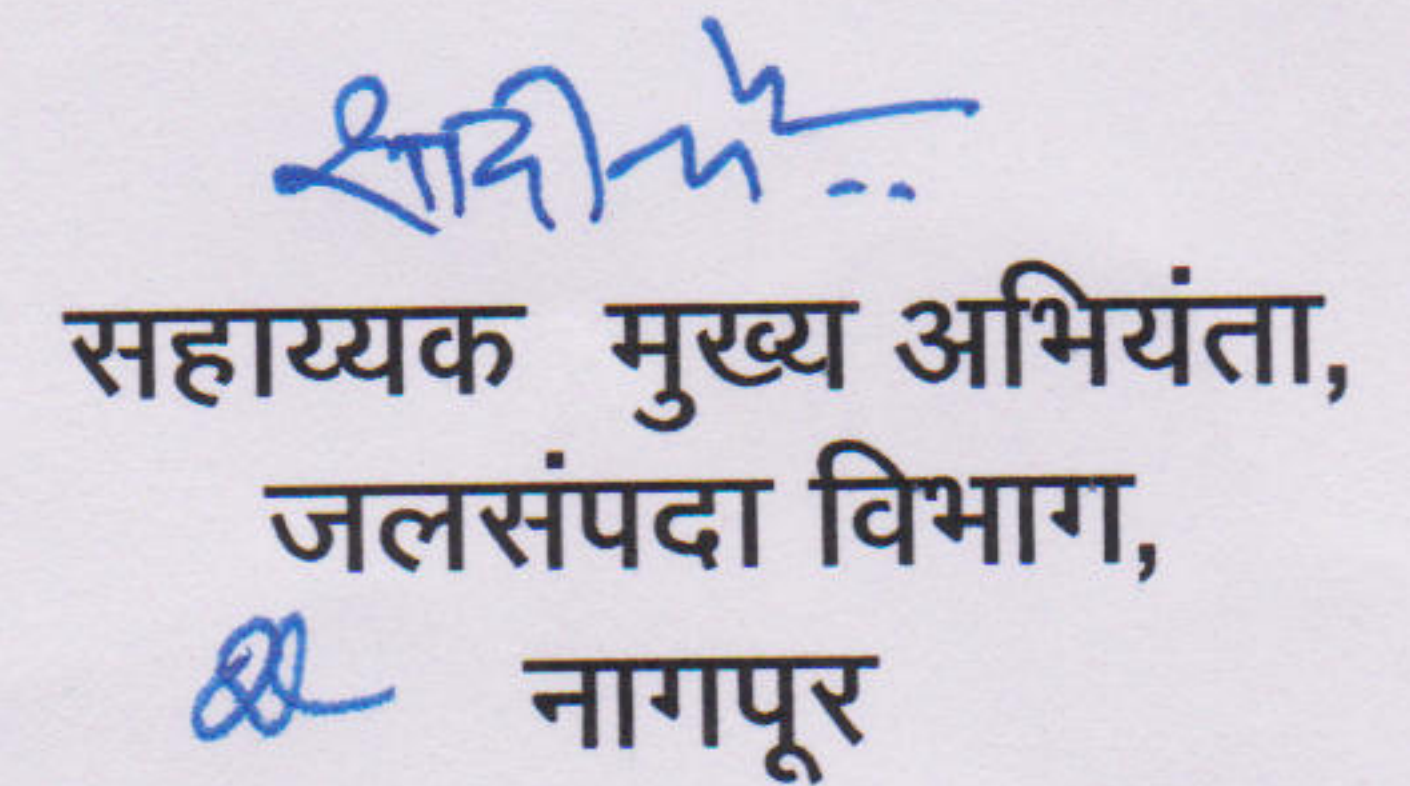 सहाय्यक मुख्य अभियंता,
जलसंपदा विभाग,
नागपूर